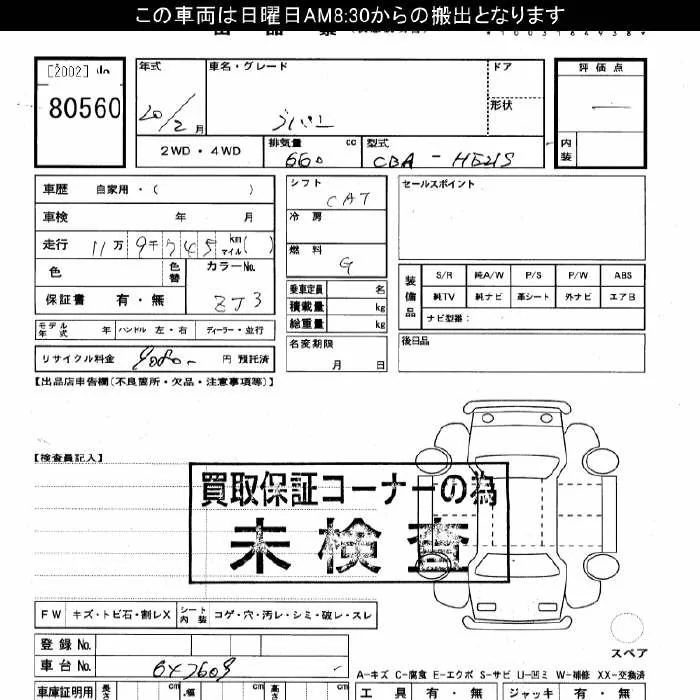 この車両は日曜日AM8:30からの搬出となります
[2002]
80560
年式
20/2月
車名・グレード
ドア
形状
評価点
内装
2WD・4WD
排気量 660 cc
型式
車歴 自家用・( )
車検 年 月
走行 11万 9千 7 4 5 km マイル( )
色 色替 カラーNo.
保証書 有・無
モデル年式 年 ハンドル 左・右 ディーラー・並行
リサイクル料金 円 預託済
シフト CAT
冷房
燃料 G
乗車定員 名
積載量 kg
総重量 kg
名変期限
月 日
セールスポイント
装備品
S/R 純A/W P/S P/W ABS
純TV 純ナビ 革シート 外ナビ エアB
ナビ型番:
後日品
【出品店申告欄(不良箇所・欠品・注意事項等)】
【検査員記入】
買取保証コーナーの為
未検査
FW キズ・トビ石・割レX シート内装 コゲ・穴・汚レ・シミ・破レ・スレ
スペア
登録No.
車台No.
A-キズ C-腐食 E-エクボ S-サビ U-凹ミ W-補修 XX-交換済
車庫証明用 長さ cm 幅 cm 高さ cm
工具 有・無 ジャッキ 有・無